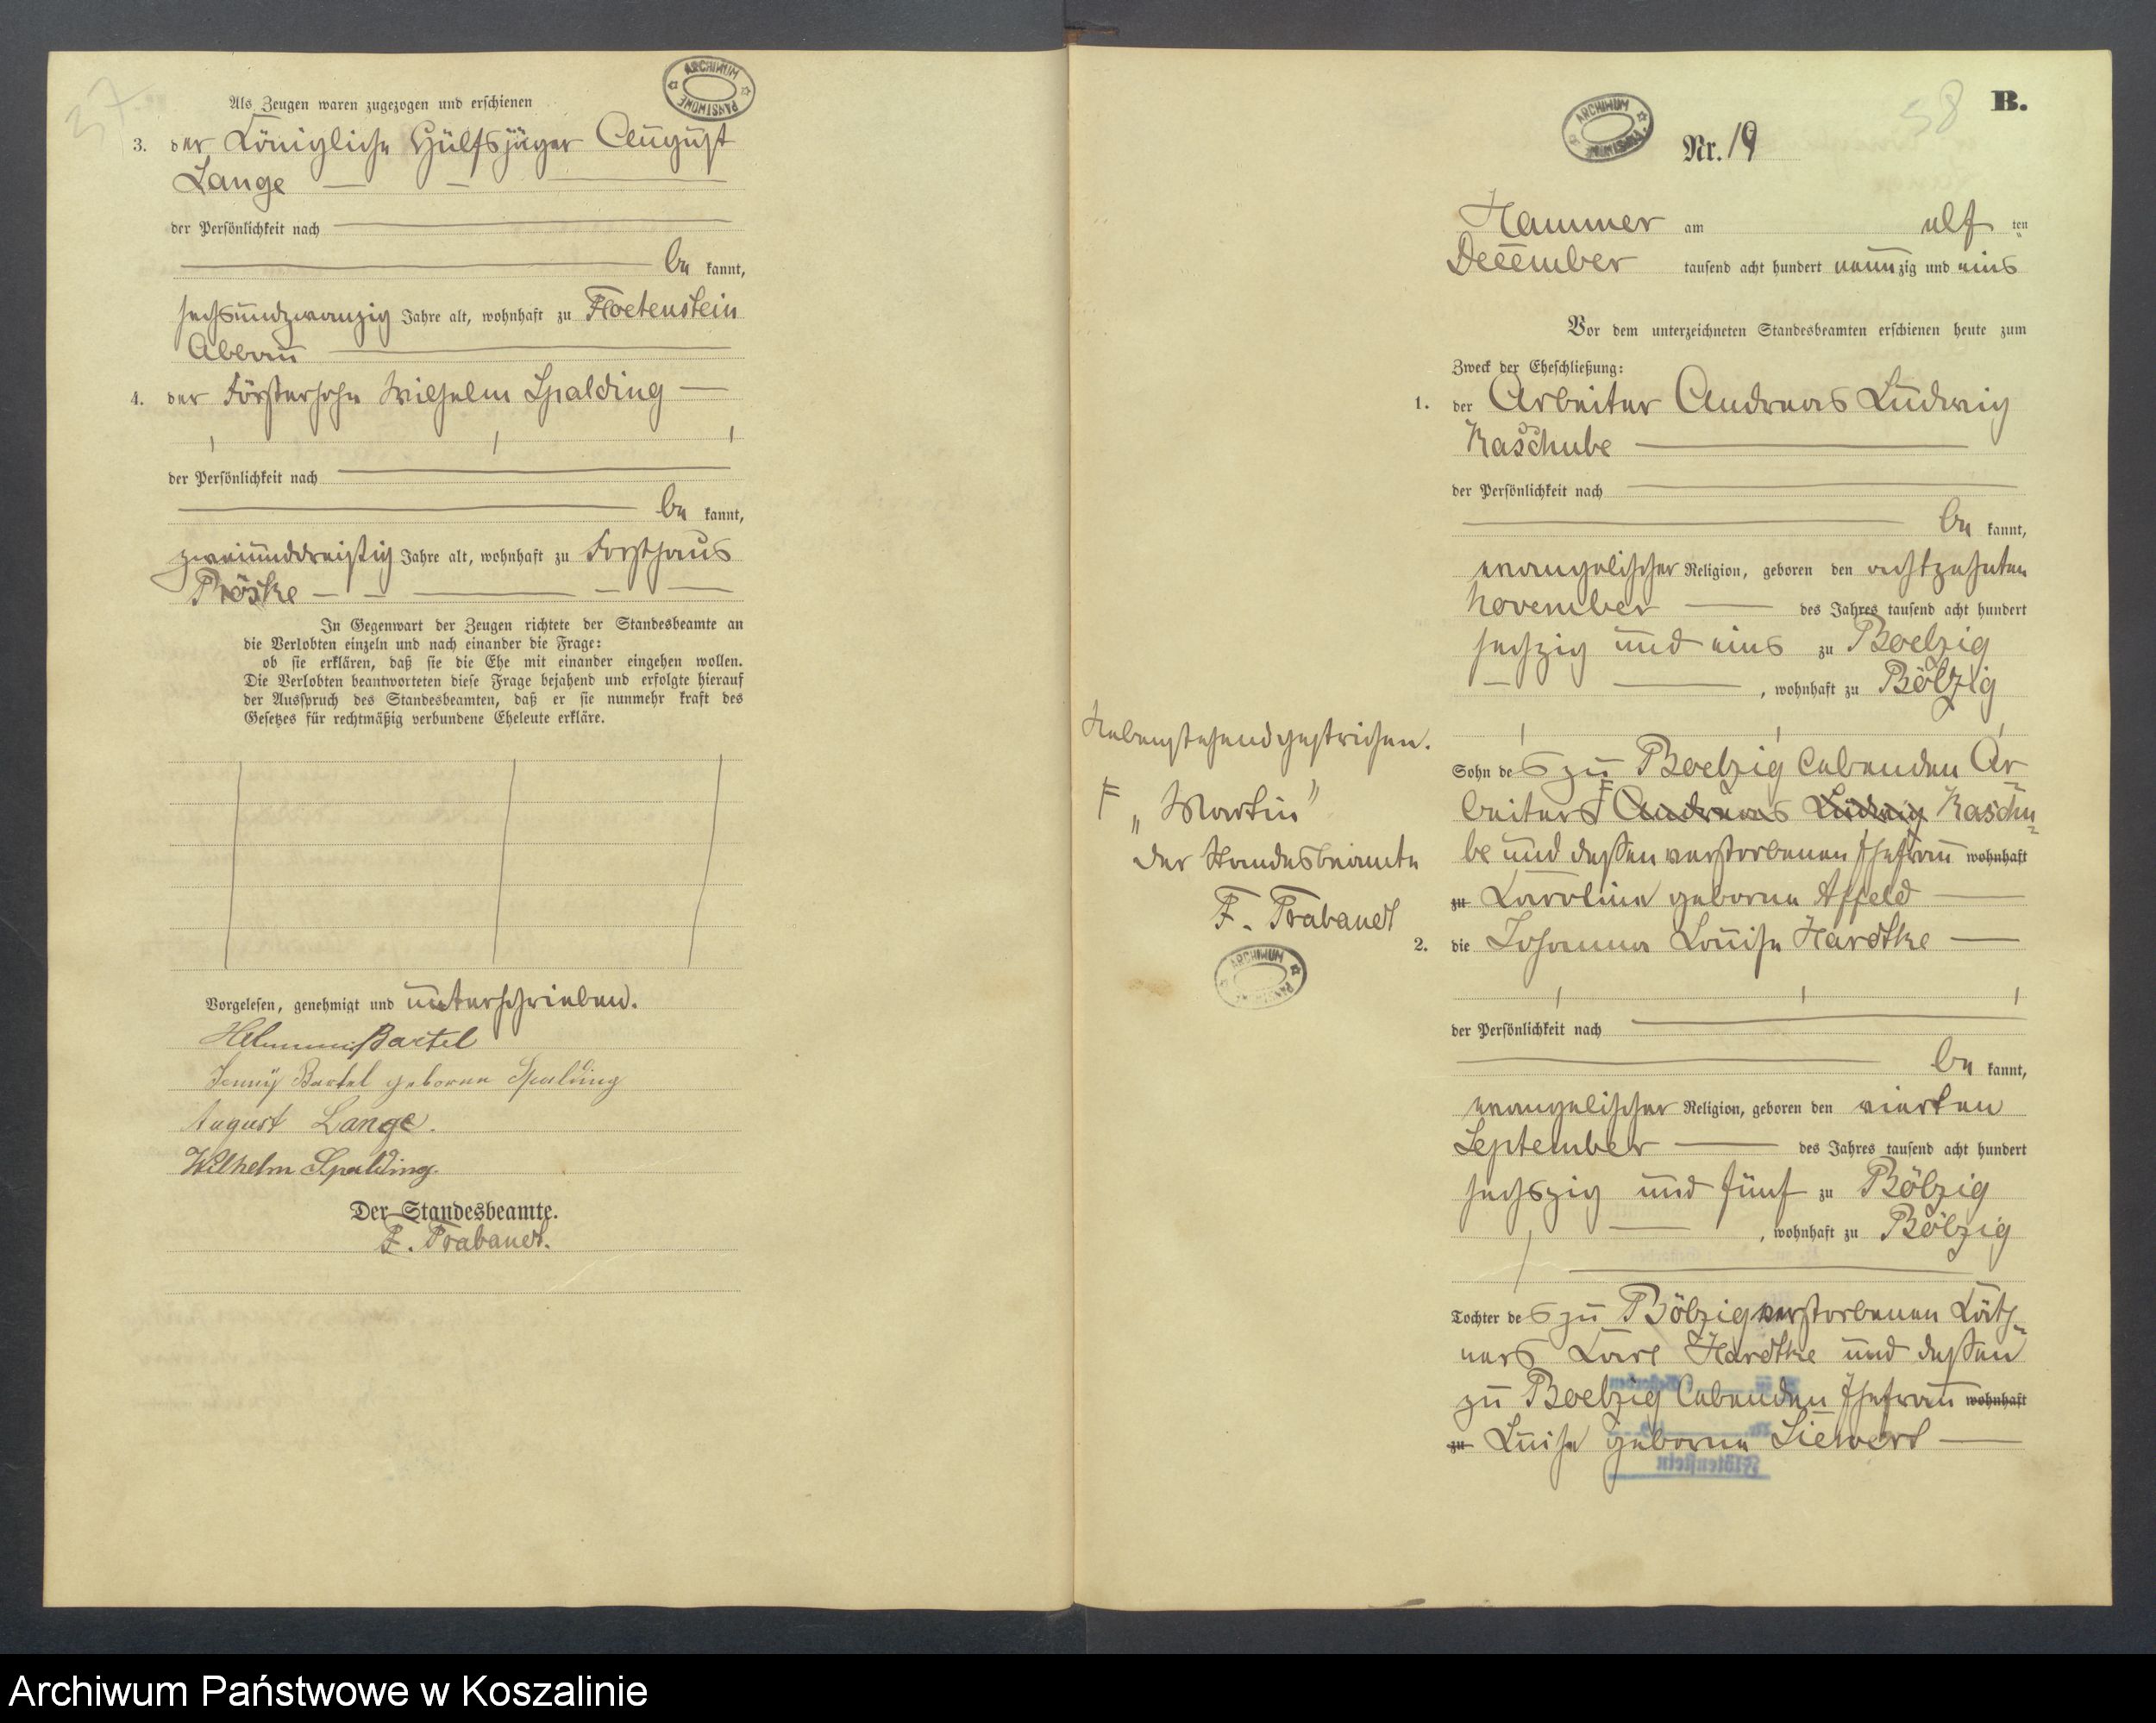 37
Als Zeugen waren zugezogen und erschienen
ARCHIWUM PAŃSTWOWE
3. der Königliche Hülfsjäger August
Lange
der Persönlichkeit nach
be kannt,
sechsundzwanzig Jahre alt, wohnhaft zu Floetenstein
Abbau
4. der Förstersohn Wilhelm Spalding
der Persönlichkeit nach
be kannt,
zweiunddreißig Jahre alt, wohnhaft zu Forsthaus
Pröske
In Gegenwart der Zeugen richtete der Standesbeamte an
die Verlobten einzeln und nach einander die Frage:
ob sie erklären, daß sie die Ehe mit einander eingehen wollen.
Die Verlobten beantworteten diese Frage bejahend und erfolgte hierauf
der Ausspruch des Standesbeamten, daß er sie nunmehr kraft des
Gesetzes für rechtmäßig verbundene Eheleute erkläre.
Vorgelesen, genehmigt und unterschrieben.
Bartel
Jenny Bartel geborne Spalding
August Lange.
Wilhelm Spalding.
Der Standesbeamte.
F. Trabandt.
58
B.
ARCHIWUM PAŃSTWOWE
Nr. 19
Hammer am elf ten
December tausend acht hundert neunzig und eins
Vor dem unterzeichneten Standesbeamten erschienen heute zum
Zweck der Eheschließung:
1. der Arbeiter Andreas Ludwig
Kaschube
der Persönlichkeit nach
be kannt,
evangelischer Religion, geboren den achtzehnten
November des Jahres tausend acht hundert
sechzig und eins zu Boelzig
, wohnhaft zu Bölzig
Sohn des zu Boelzig lebenden Ar-
beiters F Andreas Ludwig Kaschu-
be und dessen verstorbenen Ehefrau wohnhaft
zu Karoline geborne Affeld
2. die Johanna Louise Hardtke
der Persönlichkeit nach
be kannt,
evangelischer Religion, geboren den vierten
September des Jahres tausend acht hundert
sechszig und fünf zu Bölzig
, wohnhaft zu Bölzig
Tochter des zu Bölzig verstorbenen Käth-
ners Karl Hardtke und dessen
zu Boelzig lebenden Ehefrau wohnhaft
zu Luise geborne Siewert
Nebenstehend gestrichen.
F „Martin"
Der Standesbeamte
F. Trabandt
ARCHIWUM PAŃSTWOWE
Flötenstein
Archiwum Państwowe w Koszalinie